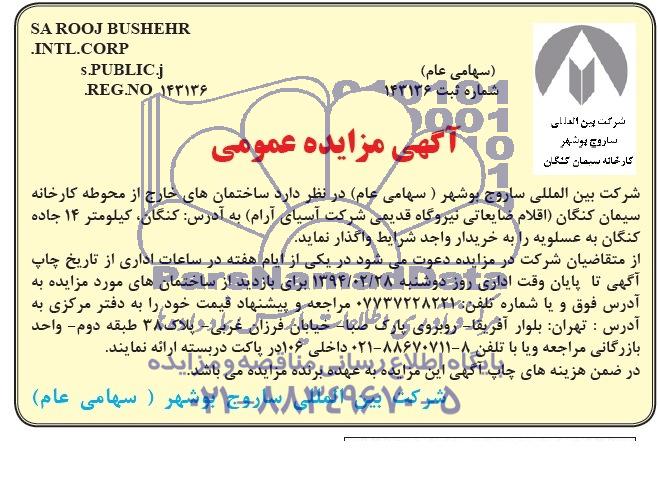 SA ROOJ BUSHEHR
INTL.CORP.
s.PUBLIC.j
REG.NO ۱۴۳۱۳۶.
(سهامی عام)
شماره ثبت ۱۴۳۱۳۶
شرکت بین المللی
ساروج بوشهر
کارخانه سیمان کنگان
آگهی مزایده عمومی
شرکت بین المللی ساروج بوشهر ( سهامی عام) در نظر دارد ساختمان های خارج از محوطه کارخانه
سیمان کنگان (اقلام ضایعاتی نیروگاه قدیمی شرکت آسیای آرام) به آدرس: کنگان، کیلومتر ۱۴ جاده
کنگان به عسلویه را به خریدار واجد شرایط واگذار نماید.
از متقاضیان شرکت در مزایده دعوت می شود در یکی از ایام هفته در ساعات اداری از تاریخ چاپ
آگهی تا پایان وقت اداری روز دوشنبه ۱۳۹۴/۰۲/۲۸ برای بازدید از ساختمان های مورد مزایده به
آدرس فوق و یا شماره تلفن: ۰۷۷۳۷۲۲۸۲۲۱ مراجعه و پیشنهاد قیمت خود را به دفتر مرکزی به
آدرس : تهران: بلوار آفریقا- روبروی پارک صبا- خیابان فرزان غربی- پلاک۳۸ طبقه دوم- واحد
بازرگانی مراجعه ویا با تلفن ۸-۸۸۶۷۰۷۱۱-۰۲۱ داخلی ۱۰۶در پاکت دربسته ارائه نمایند.
در ضمن هزینه های چاپ آگهی این مزایده به عهده برنده مزایده می باشد.
شرکت بین المللی ساروج بوشهر ( سهامی عام)
ParsNamadData
پایگاه اطلاع رسانی مناقصه و مزایده
۰۲۱-۸۸۳۴۹۶۷۰-۵